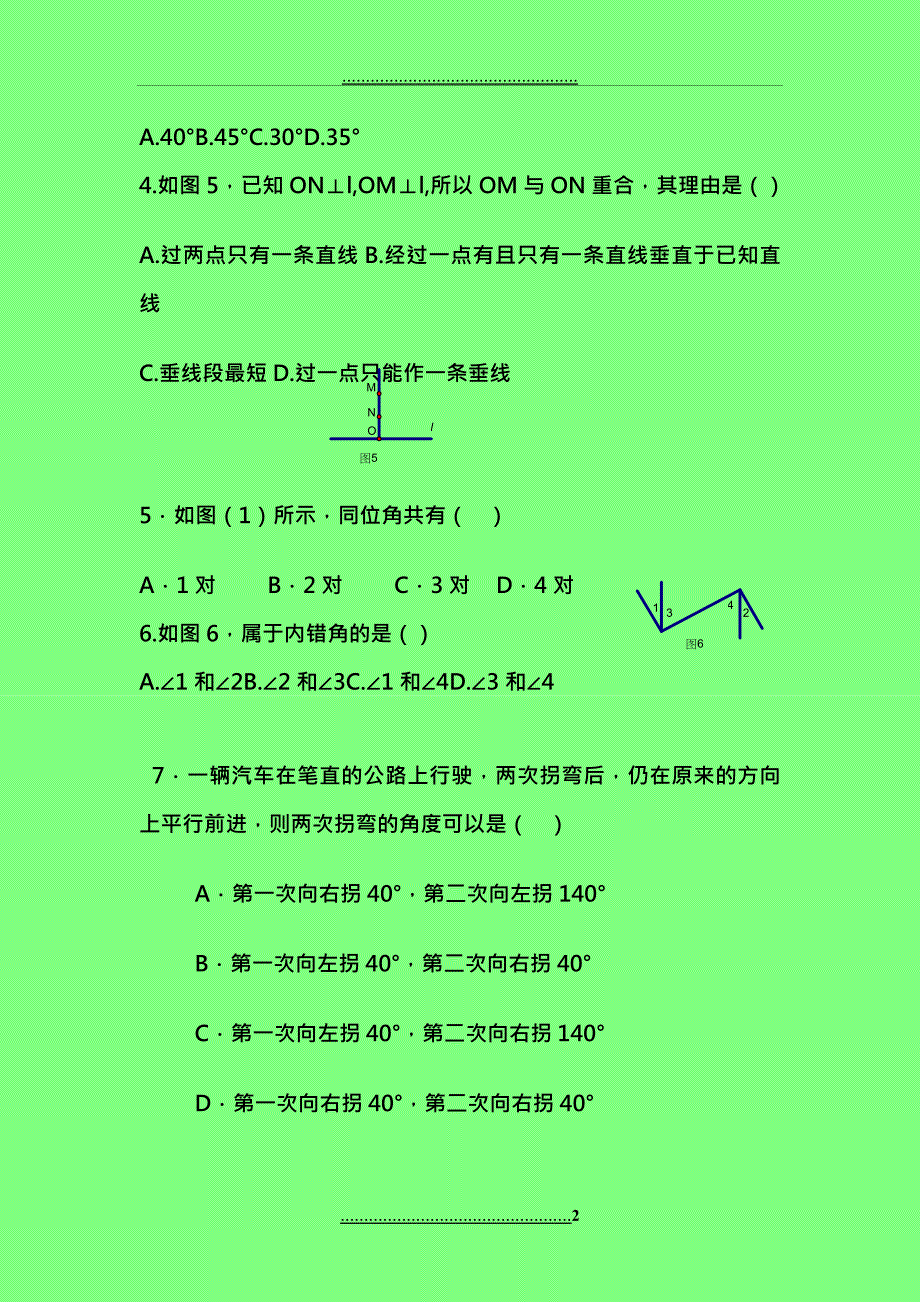 A.40°B.45°C.30°D.35°
4.如图 5，已知 ON⊥l,OM⊥l,所以 OM 与 ON 重合，其理由是（ ）
A.过两点只有一条直线 B.经过一点有且只有一条直线垂直于已知直
线
C.垂线段最短 D.过一点只能作一条垂线
M
N
O
l
图5
5．如图（1）所示，同位角共有（ ）
A．1 对 B．2 对 C．3 对 D．4 对
1
3
4
2
图6
6.如图 6，属于内错角的是（ ）
A.∠1 和∠2B.∠2 和∠3C.∠1 和∠4D.∠3 和∠4
7．一辆汽车在笔直的公路上行驶，两次拐弯后，仍在原来的方向
上平行前进，则两次拐弯的角度可以是（ ）
A．第一次向右拐 40°，第二次向左拐 140°
B．第一次向左拐 40°，第二次向右拐 40°
C．第一次向左拐 40°，第二次向右拐 140°
D．第一次向右拐 40°，第二次向右拐 40°
2